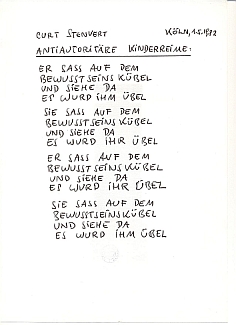 CURT STENVERT KÖLN, 1.5.1982
ANTIAUTORITÄRE KINDERREIME:
ER SASS AUF DEM
BEWUSSTSEINSKÜBEL
UND SIEHE DA
ES WURD IHM ÜBEL
SIE SASS AUF DEM
BEWUSSTSEINSKÜBEL
UND SIEHE DA
ES WURD IHR ÜBEL
ER SASS AUF DEM
BEWUSSTSEINSKÜBEL
UND SIEHE DA
ES WURD IHR ÜBEL
SIE SASS AUF DEM
BEWUSSTSEINSKÜBEL
UND SIEHE DA
ES WURD IHM ÜBEL